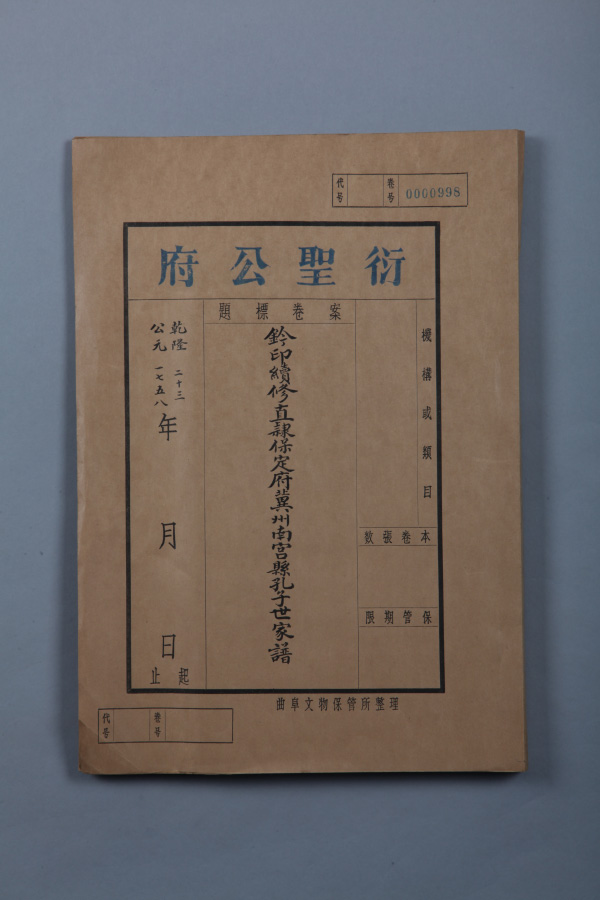 代号 卷号 0000998
衍聖公府
機構或類目
本卷張数
保管期限
案卷標題
鈐印續修直隸保定府冀州南宮縣孔子世家譜
乾隆二十三
公元一七五八年 月 日
起止
曲阜文物保管所整理
代号 卷号